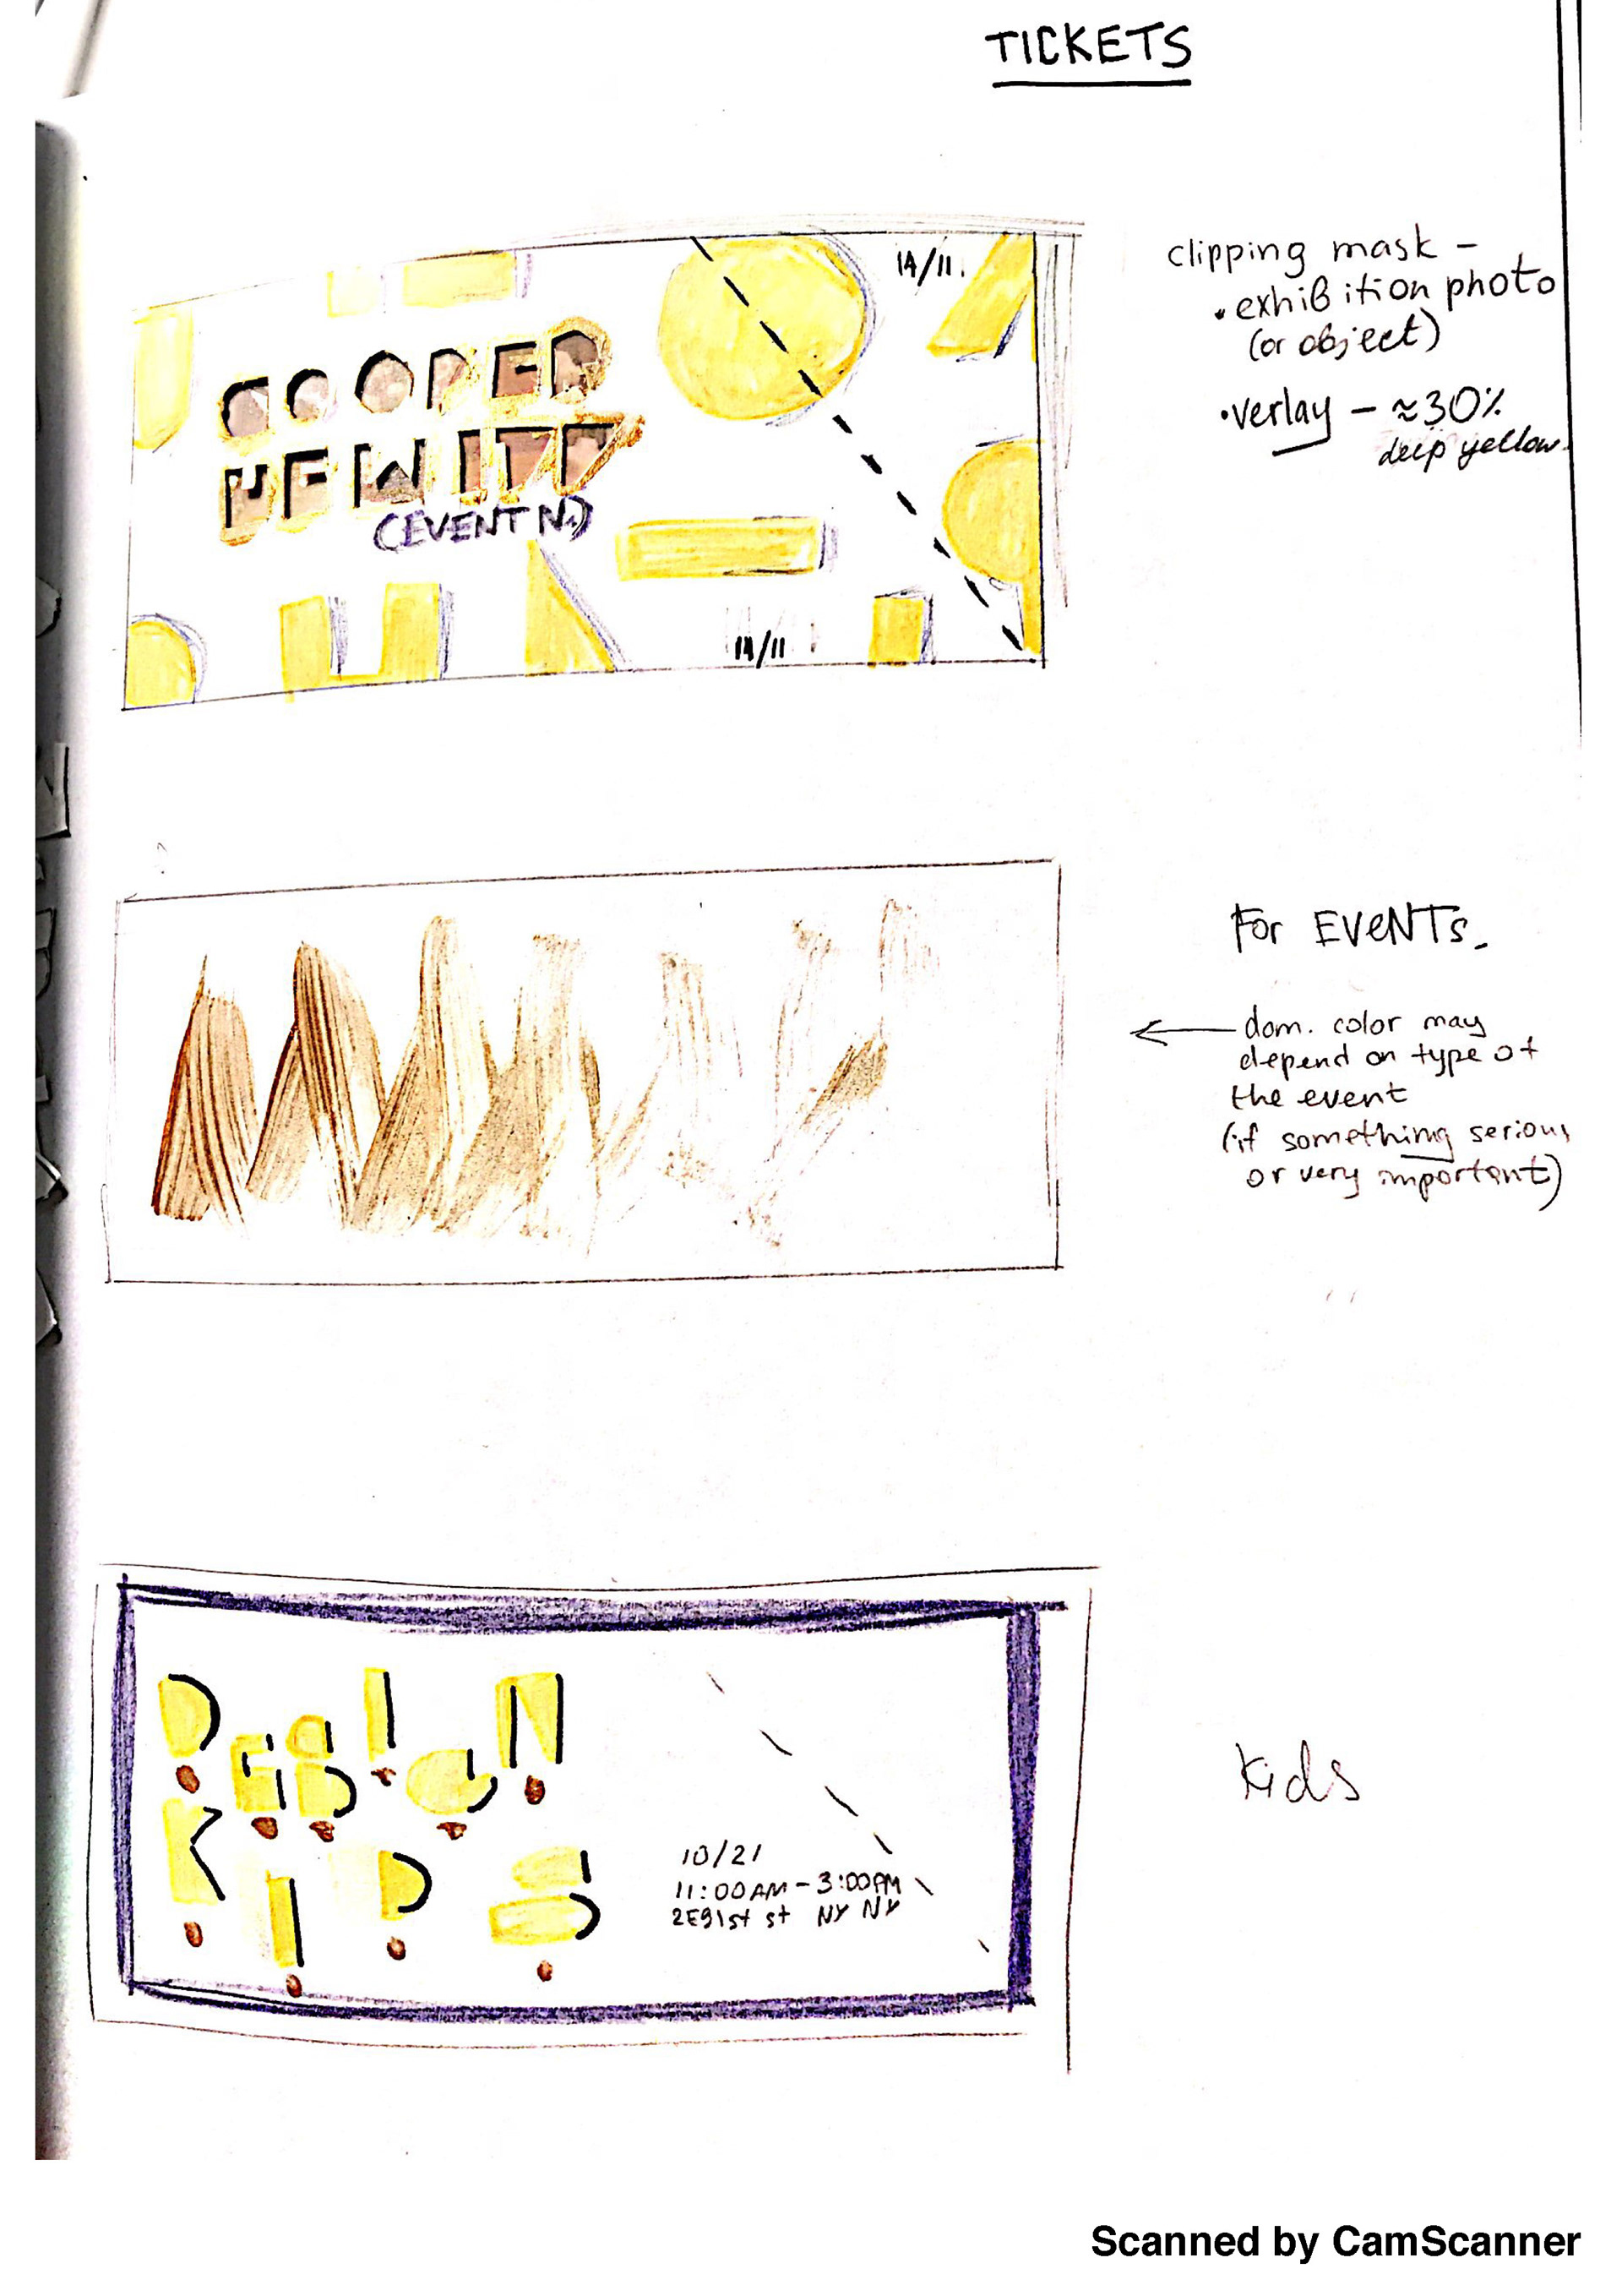 TICKETS
14/11.
COOPER
HEWITT
(EVENT N.)
14/11
clipping mask –
• exhiBition photo
(or object)
•verlay – ≈30%
deep yellow.
For EVeNTs.
← dom. color may
depend on type of
the event
(if something serious
or very important)
DESIGN
KIDS
10/21
11:00AM – 3:00PM
2E91st st NY NY
kids
Scanned by CamScanner